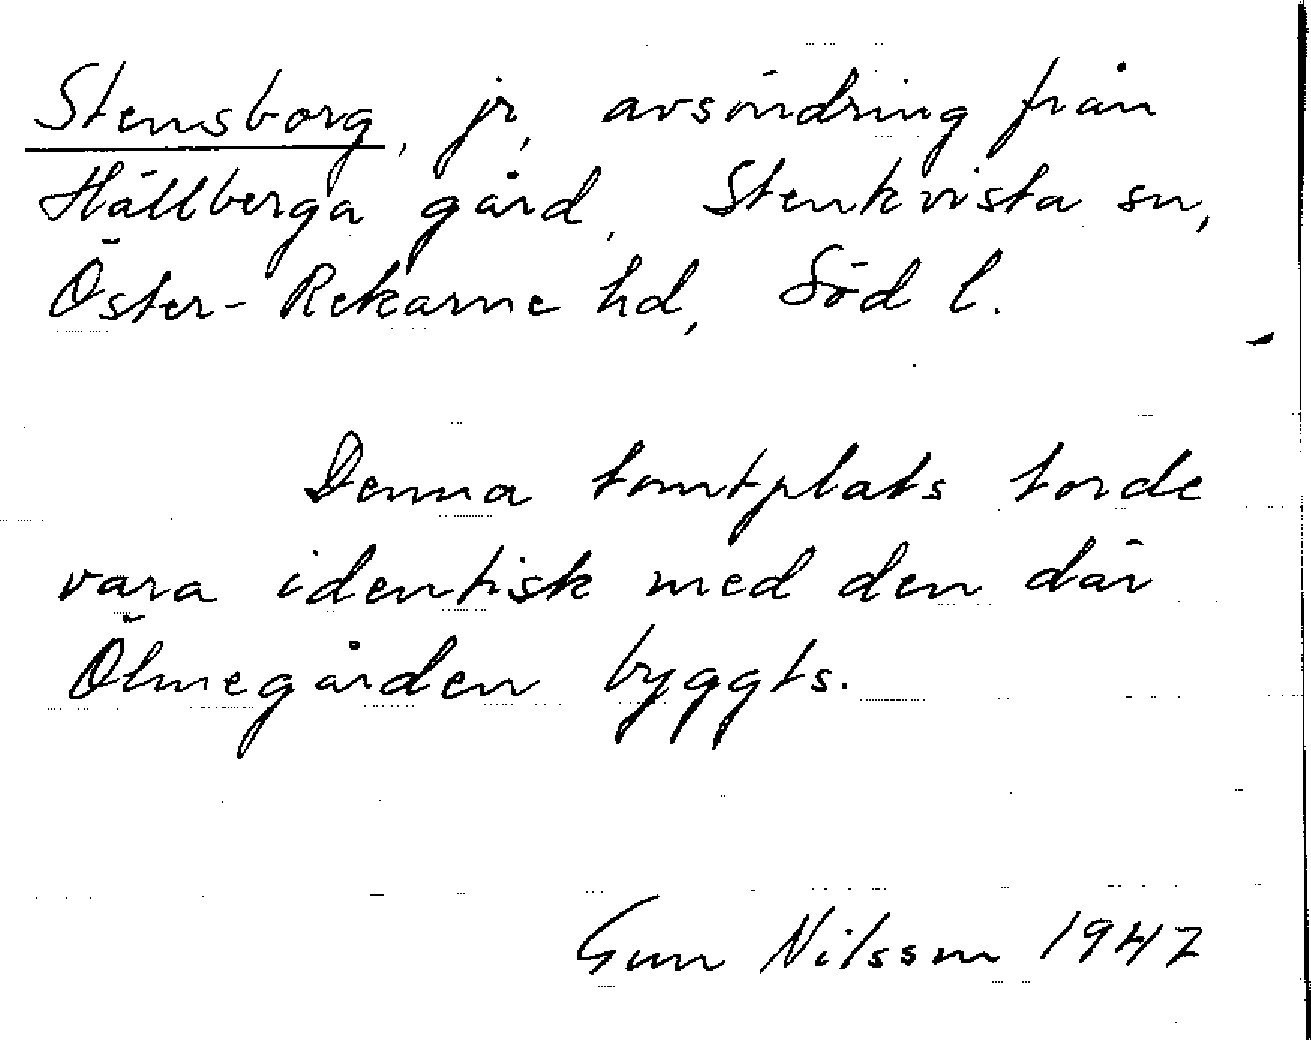 Stensborg, jr, avsöndring från
Hällberga gård, Stenkvista sn,
Öster-Rekarne hd, Söd l.
Denna tomtplats torde
vara identisk med den där
Ölmegården byggts.
Gun Nilsson 1947